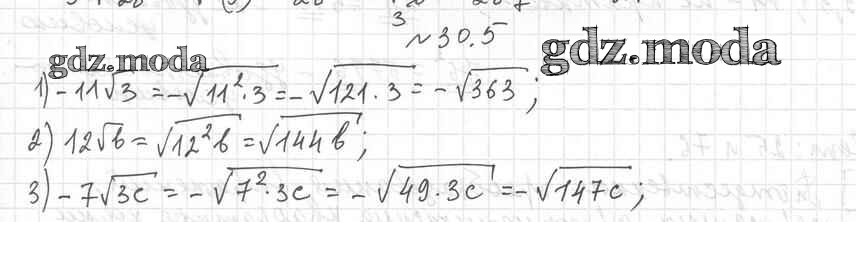 ~30.5
gdz.moda gdz.moda
1) -11√3 = -√(11²·3) = -√(121·3) = -√363;
2) 12√b = √(12²b) = √(144b);
3) -7√(3c) = -√(7²·3c) = -√(49·3c) = -√(147c);